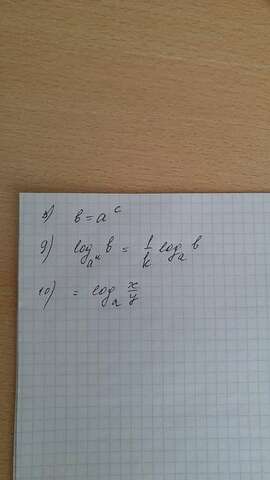 8) b = a^c
9) log_{a^k} b = 1/k log_a b
10) = log_a x/y